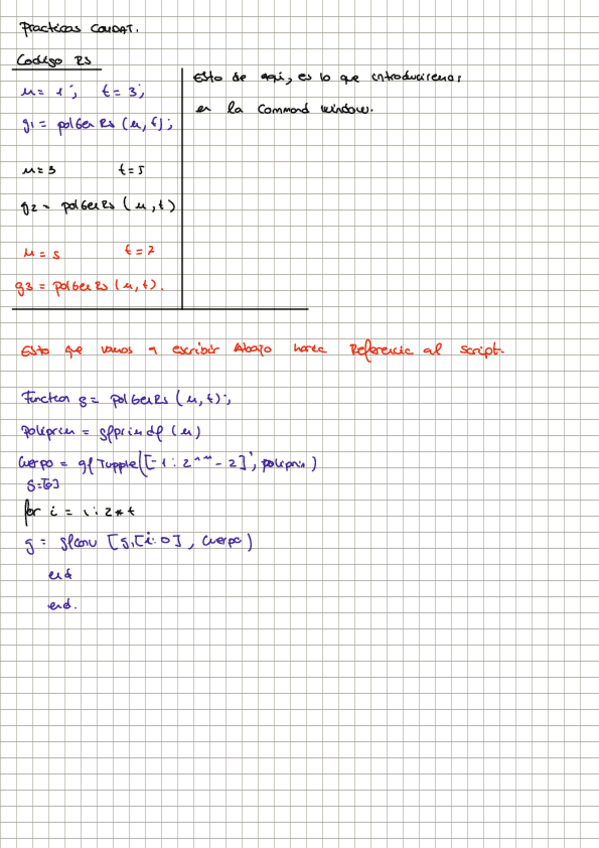 Practicas CODDAT.
Codigo RS
m = 1; t = 3;
g1 = polGenRs (m, t);
m = 3 t = 5
g2 = polGenRs (m, t)
m = 5 t = 7
g3 = polGenRs (m, t).
Esto de aqui, es lo que introduciremos
en la Command window.
Esto que vamos a escribir Abajo haria Referencia al script.
Function g = polGenRs (m, t);
poliprim = gfprimdf (m)
Cuerpo = gfTupple([-1 : 2^m - 2]', poliprim)
g = [0]
for i = 1 : 2*t
g = gfconv [g, [i: 0], Cuerpo)
end
end.